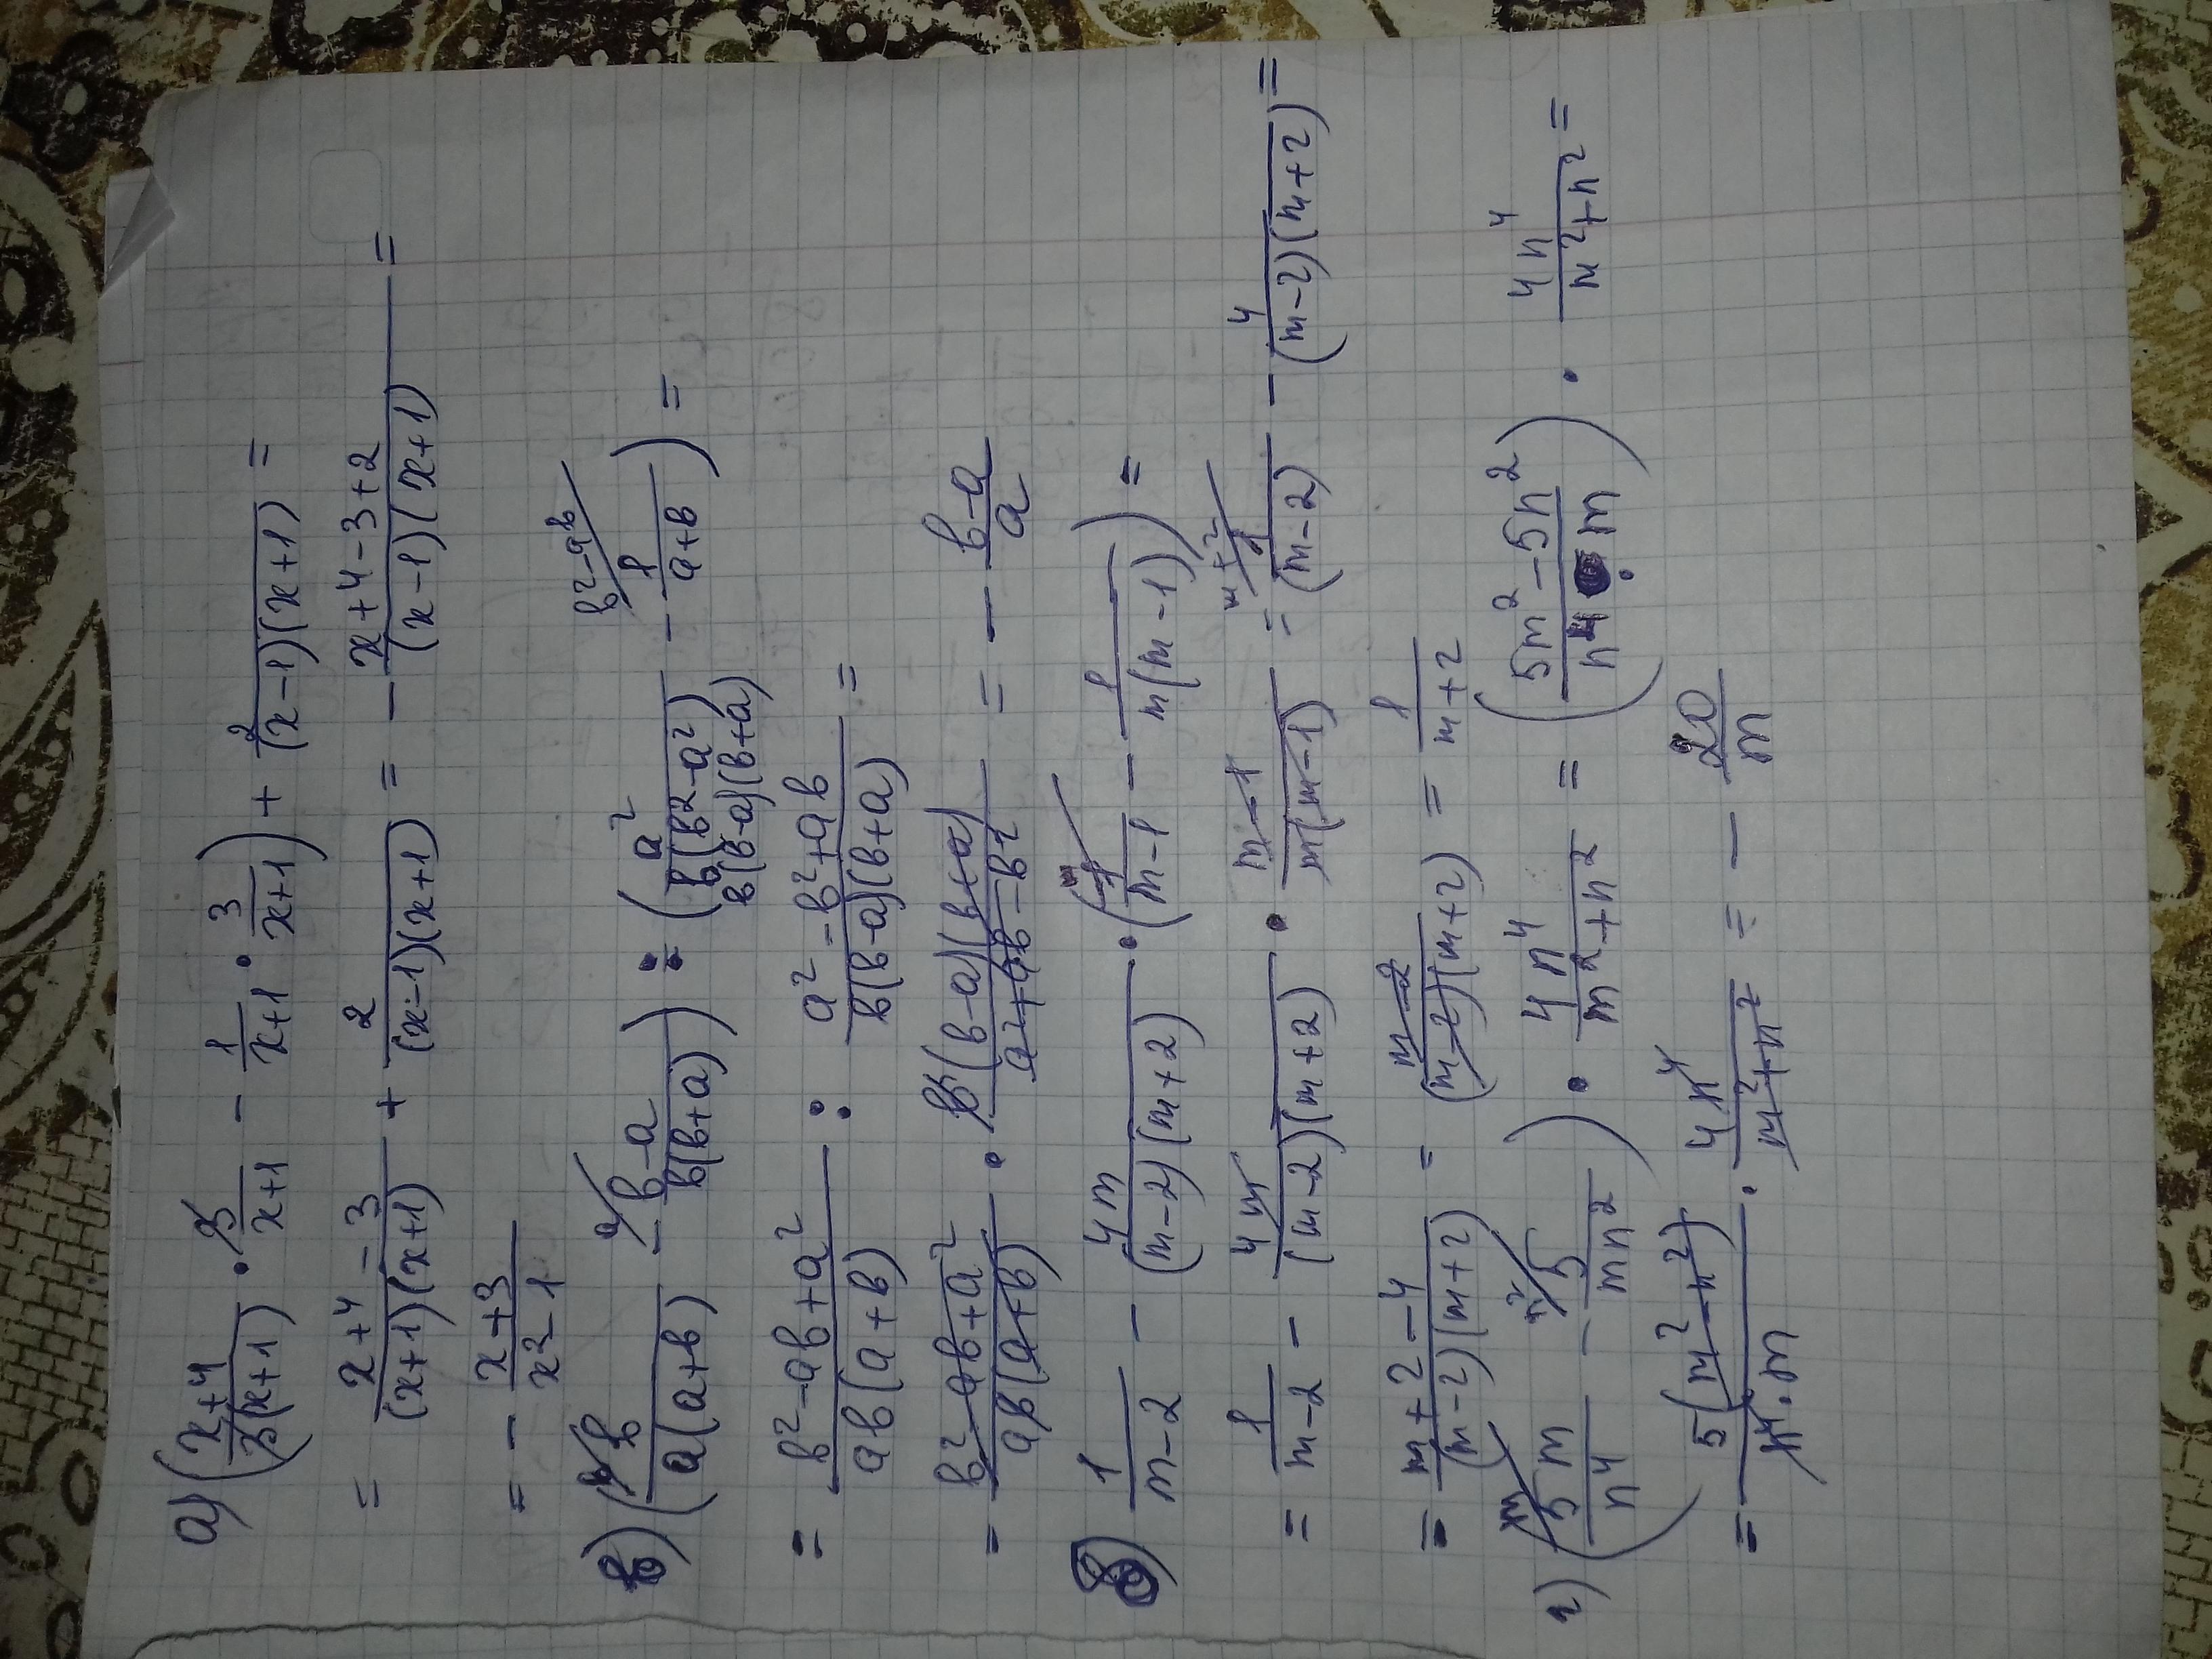 а) ((x+4)/(3(x+1)) · 3/(x+1) - 1/(x+1) · 3/(x+1)) + 2/((x-1)(x+1)) =
= (x+4-3)/((x+1)(x+1)) + 2/((x-1)(x+1)) = - (x+4-3+2)/((x-1)(x+1)) =
= - (x+3)/(x²-1)
в) (b/(a(a+b)) - (b-a)/(b(b+a))) : (a²/(b(b²-a²)) - 1/(a+b)) =
b²-ab
b(b-a)(b+a)
= (b²-ab+a²)/(ab(a+b)) : (a²-b²+ab)/(b(b-a)(b+a)) =
= (b²-ab+a²)/(ab(a+b)) · b(b-a)(b+a)/(a²+ab-b²) = - (b-a)/a
б) 1/(m-2) - 4m/((m-2)(m+2)) · (1/(m-1) - 1/(m(m-1))) =
= 1/(m-2) - 4m/((m-2)(m+2)) · (m-1)/(m(m-1)) = 1/(m-2) - 4/((m-2)(m+2)) =
m+2
= (m+2-4)/((m-2)(m+2)) = (m-2)/((m-2)(m+2)) = 1/(m+2)
г) (5m/n⁴ - 5/(mn²)) · 4n⁴/(m²+n²) = ((5m²-5n²)/(n⁴·m)) · 4n⁴/(m²+n²) =
= 5(m²-n²)/(n⁴·m) · 4n⁴/(m²+n²) = - 20/m